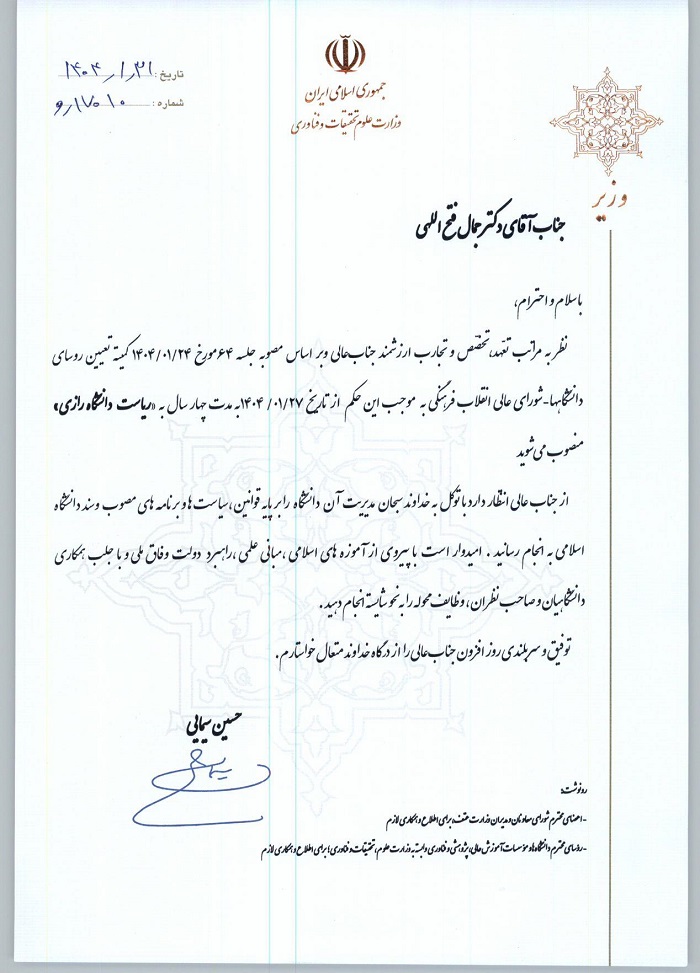 جمهوری اسلامی ایران
وزارت علوم تحقیقات و فناوری
تاریخ: ۱۴۰۴/۱/۳۱
شماره: ۱۷۰۱۰/و
وزیر
جناب آقای دکتر جمال فتح اللهی
با سلام و احترام،
نظر به مراتب تعهد، تخصص و تجارب ارزشمند جناب‌عالی و بر اساس مصوبه جلسه ۶۴ مورخ ۱۴۰۴/۰۱/۲۴ کمیته تعیین روسای
دانشگاهها-شورای عالی انقلاب فرهنگی به موجب این حکم از تاریخ ۱۴۰۴/۰۱/۲۷ به مدت چهار سال به «ریاست دانشگاه رازی»
منصوب می‌شوید
از جناب عالی انتظار دارد با توکل به خداوند سبحان مدیریت آن دانشگاه را بر پایه قوانین، سیاست ها و برنامه های مصوب و سند دانشگاه
اسلامی به انجام رسانید . امیدوار است با پیروی از آموزه های اسلامی ، مبانی علمی ، راهبرد دولت وفاق ملی و با جلب همکاری
دانشگاهیان و صاحب نظران، وظایف محوله را به نحو شایسته انجام دهید .
توفیق و سربلندی روز افزون جناب‌عالی را از درگاه خداوند متعال خواستارم.
حسین سیمایی
رونوشت:
- اعضای محترم شورای معاونان و مدیران وزارت متبوع، برای اطلاع و همکاری لازم
- روسای محترم دانشگاه‌ها و مؤسسات آموزش عالی، پژوهشی و فناوری وابسته به وزارت علوم، تحقیقات و فناوری؛ برای اطلاع و همکاری لازم